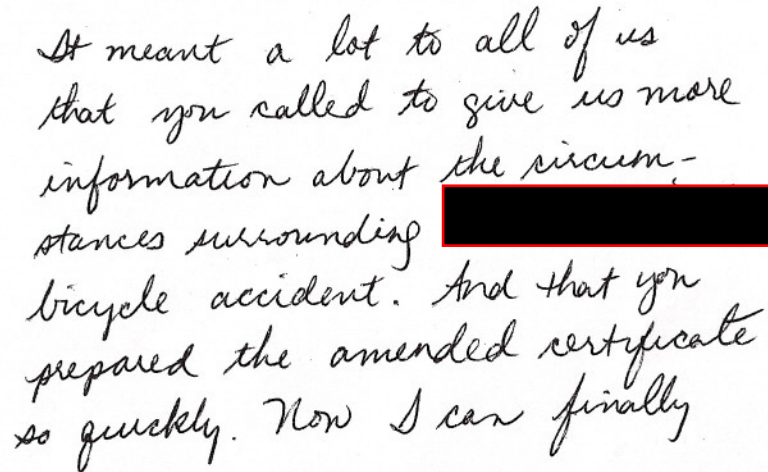 It meant a lot to all of us
that you called to give us more
information about the circum-
stances surrounding
bicycle accident. And that you
prepared the amended certificate
so quickly. Now I can finally